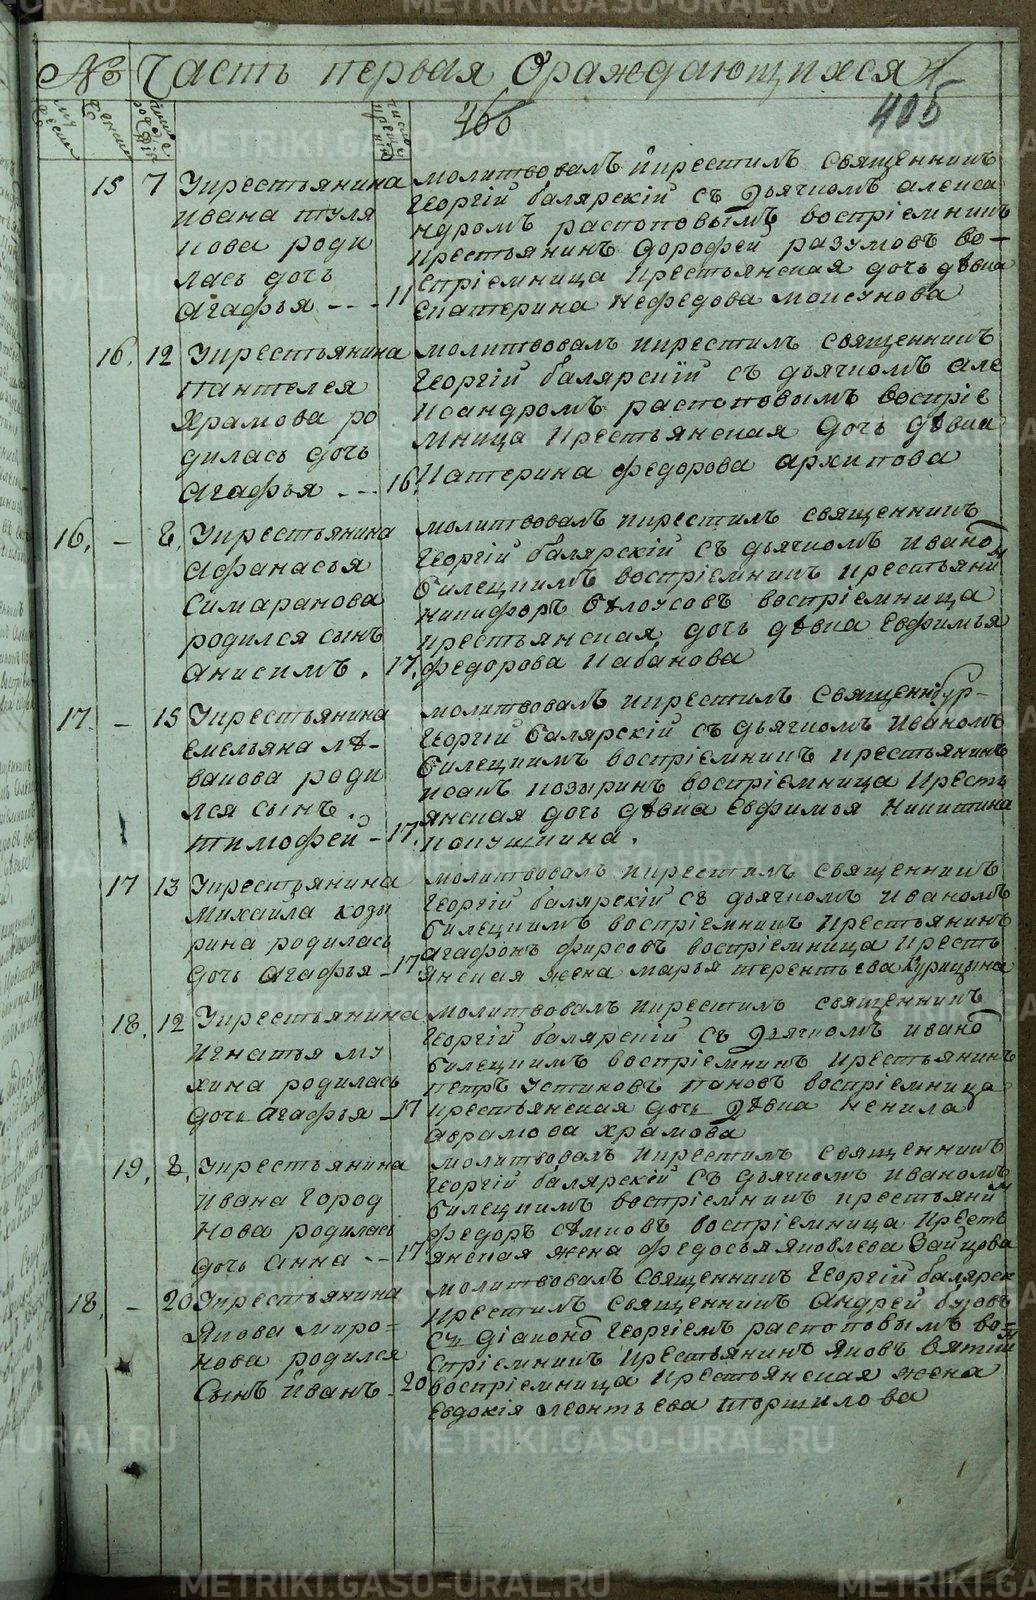 METRIKI.GASO-URAL.RU
№ Часть первая Ораждающихся
405
15 7 Укрестьянина
ивана туля
кова роди
лась дочь
агафья - - - 11
молитвовалъ икрестилъ священникъ
георгій балярскій съ дьячкомъ алекса
ндромъ распоповымъ воспріемникъ
крестьянинъ дорофей разумовъ во-
спріемница крестьянская дочь дѣвка
екатерина нефедова моисунова
16. 12 Укрестьянина
пантелея
храмова ро
дилась дочь
агафья - - - 16.
молитвовалъ икрестилъ священникъ
георгій балярскій съ дьячкомъ але
ксандромъ распоповымъ воспріе
мница крестьянская дочь дѣвка
катерина федорова архипова
16. - 8. Укрестьянина
афанасья
симаранова
родился сынъ
анисимъ. 17.
молитвовалъ икрестилъ священникъ
георгій балярскій съ дьячкомъ ивано
билецкимъ воспріемникъ крестьяни
никифоръ бѣлоусовъ воспріемница
крестьянская дочь дѣвка евфимья
федорова кабанова
17. - 15 Укрестьянина
емельяна лѣ-
вакова роди
лся сынъ
тимофей - 17.
молитвовалъ икрестилъ священ
георгій балярскій съ дьячкомъ иваномъ
билецкимъ воспріемникъ крестьянинъ
исакъ козыринъ воспріемница кресть
янская дочь дѣвка евфимья никитина
кокушкина.
17 13 Укрестьянина
михаила козы
рина родилась
дочь агафья - 17
молитвовалъ икрестилъ священникъ
георгій балярскій съ дьячкомъ иваномъ
билецкимъ воспріемникъ крестьянинъ
агафонъ фирсовъ воспріемница кресть
янская жена марья терентьева курицына
18. 12 Укрестьянина
игнатья му
хина родилась
дочь агафья - 17
молитвовалъ икрестилъ священникъ
георгій балярскій съ дьячкомъ ивано
билецкимъ воспріемникъ крестьянинъ
петръ устиновъ пановъ воспріемница
крестьянская дочь дѣвка ненила
аврамова храмова
19. 8. Укрестьянина
ивана город
нова родилась
дочь анна - - 17
молитвовалъ икрестилъ священникъ
георгій балярскій съ дьячкомъ иваномъ
билецкимъ воспріемникъ крестьяни
федоръ сѣмковъ воспріемница кресть
янская жена федосья яковлева зайцова
18. - 20 Укрестьянина
якова миро-
нова родился
сынъ иванъ - 20
молитвовалъ священникъ георгій балярск
крестилъ священникъ андрей бузовъ
съ діаконо георгіемъ распоповымъ во-
спріемникъ крестьянинъ яковъ вятки
воспріемница крестьянская жена
евдокія леонтьева торшилова
METRIKI.GASO-URAL.RU